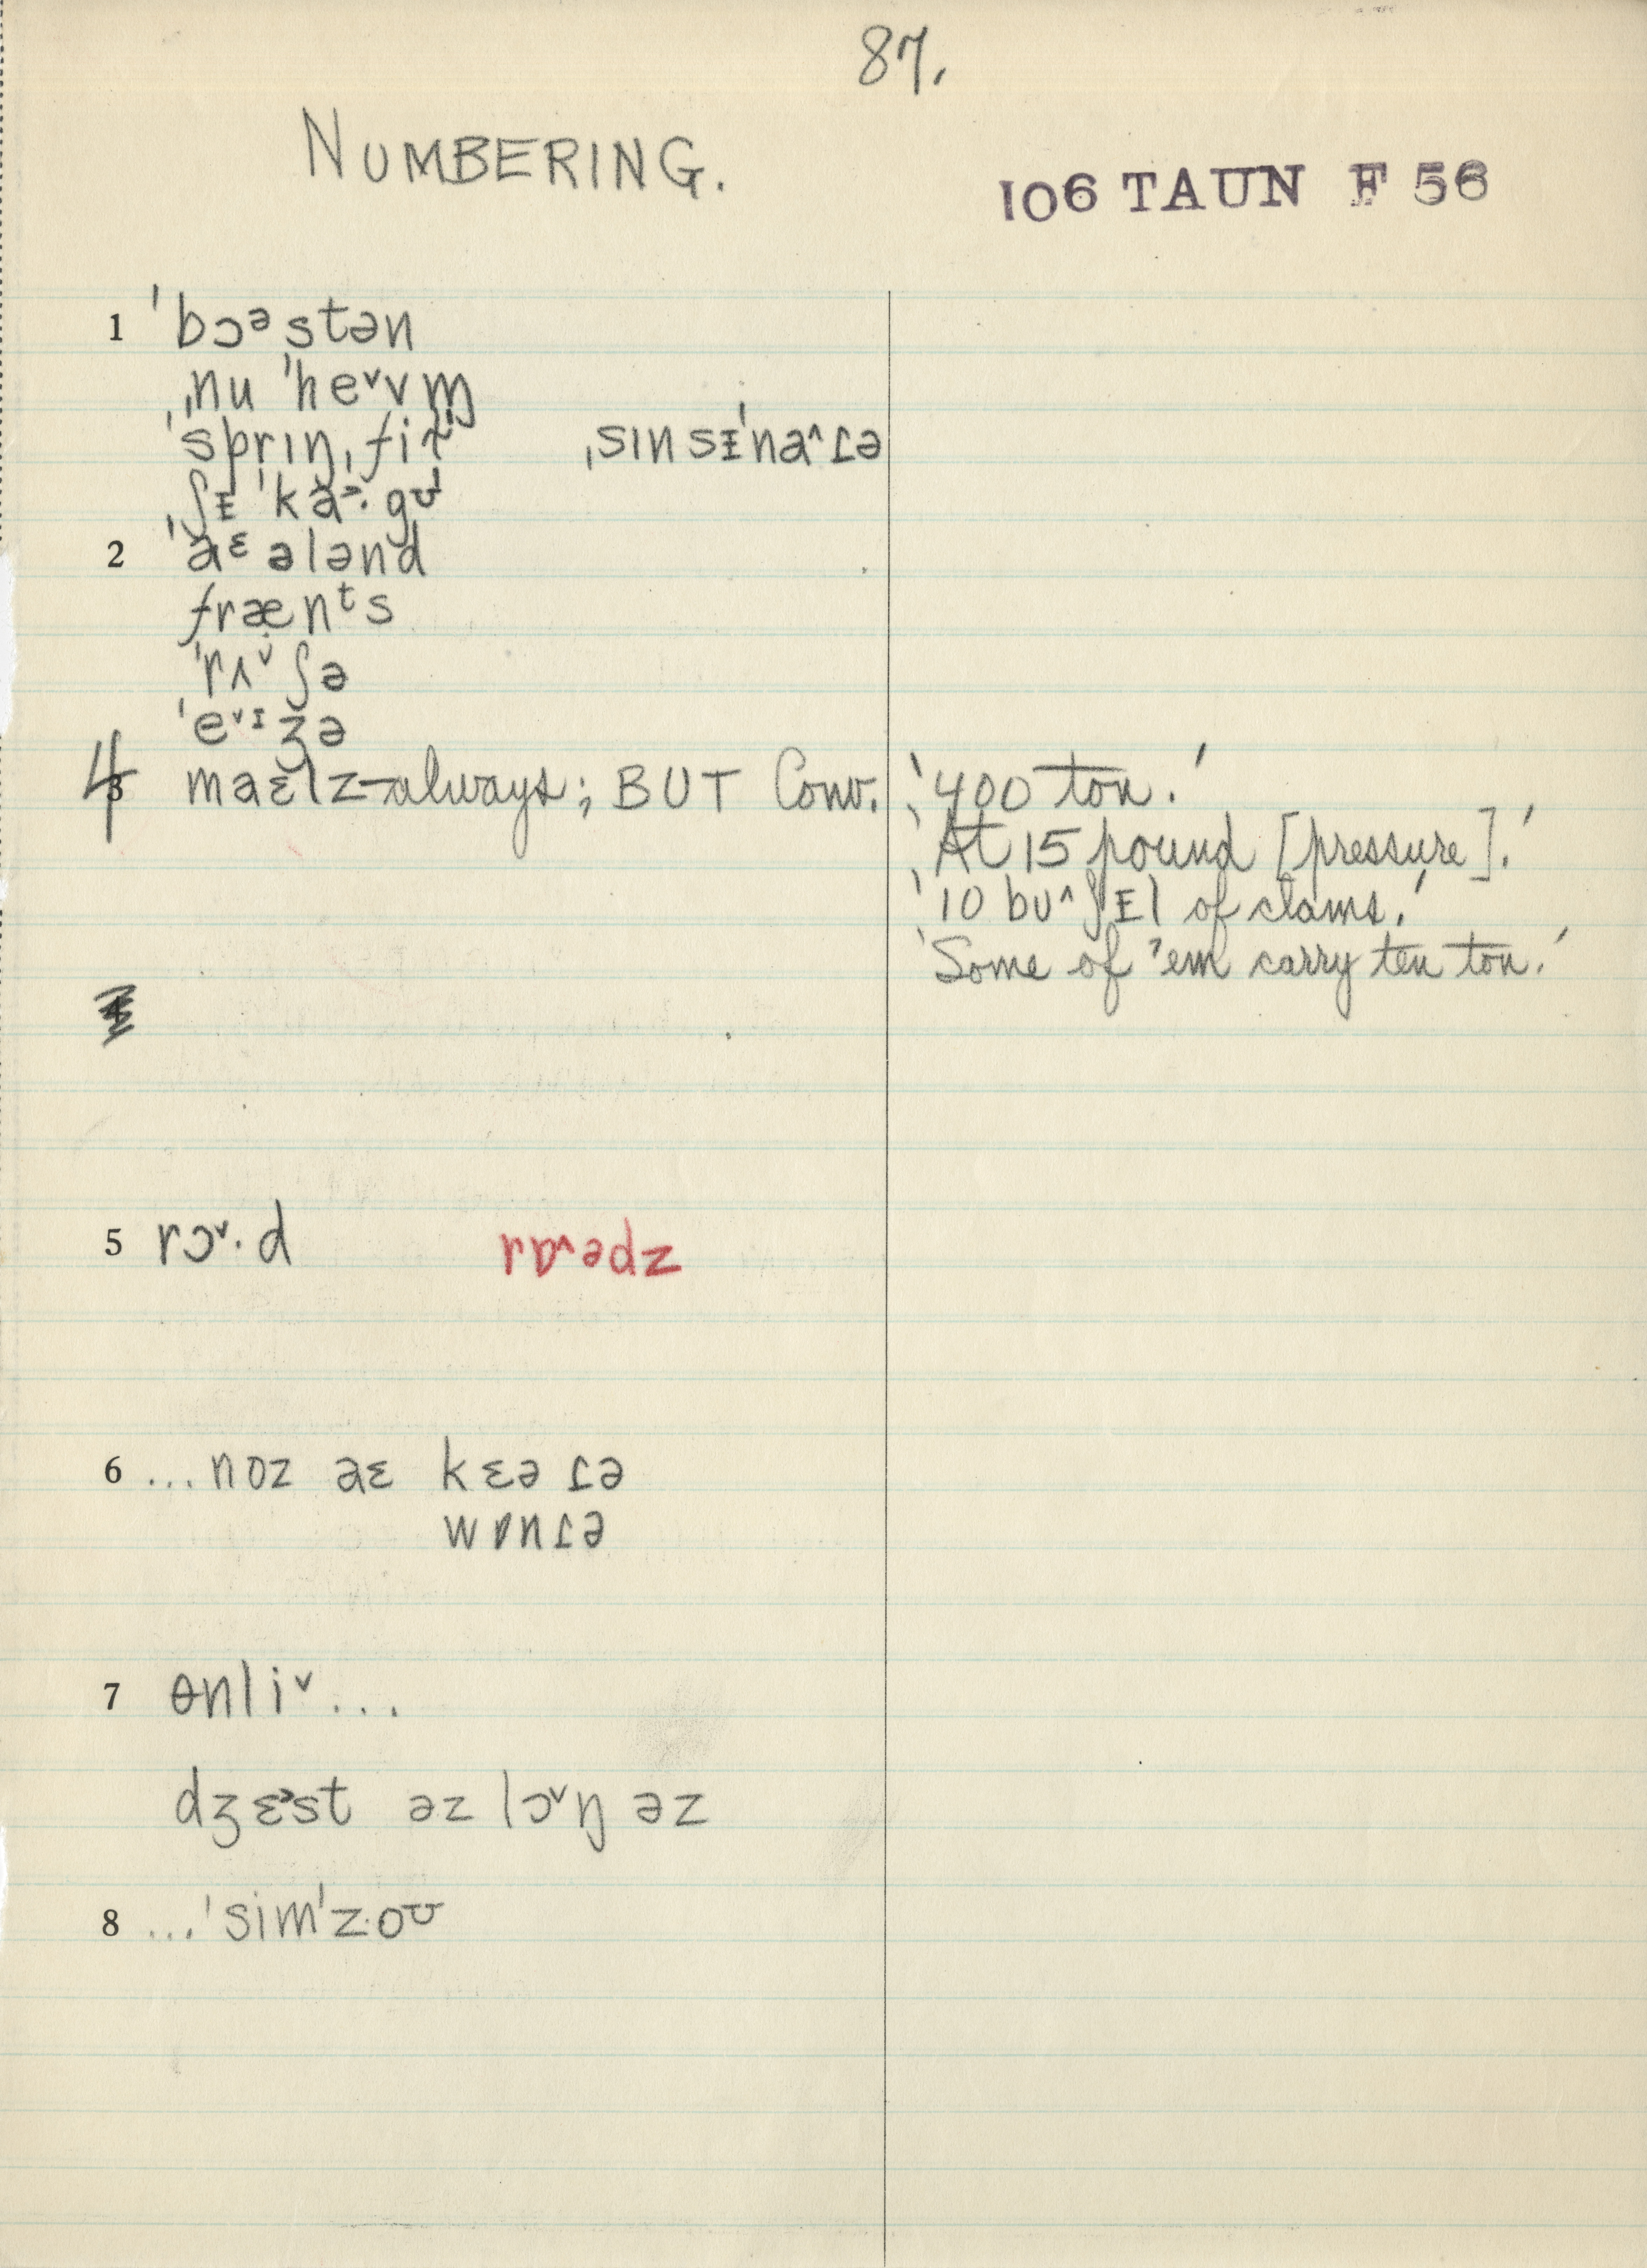 87.
NUMBERING.
106 TAUN F 56
1 ˈbɔᵊstən
ˌnu ˈhe˅vm̩
ˈsprɪŋˌfiɫ ˌsɪnsᵻˈna˄ɾə
ˌʃᵻˈkɑ̆ɔ·gʊ
2 ˈaᵋələnd
fræn​ᵗs
ˈrʌ˅ʃə
ˈe˅ᶦʒə
4 maɛlz–always; BUT Conv. '400 ton.'
'At 15 pound [pressure].'
'10 bʊ˄ʃᵻl of clams.'
'Some of 'em carry ten ton.'
5 rɔ˅·d rɒ˄ədz
6 ...noz aɛ kɛəɾə
wɒnɾə
7 ɵnli˅...
dʒɛ˃st əz lɔ˅ŋ əz
8 ...ˈsimˈz·oʊ